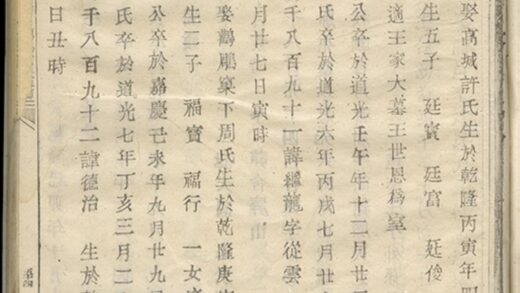 娶高城許氏生於乾隆丙寅年四
生五子 廷賓 廷富 廷俊
適王家大墓王世恩為室
公卒於道光壬午年十二月廿二
氏卒於道光六年丙戌七月廿
千八百九十一諱繼龍字從雲
月廿七日寅時
娶鸛鵰窠下周氏生於乾隆庚
生二子 福寶 福行 一女適
公卒於嘉慶己未年九月廿九
氏卒於道光七年丁亥三月二
千八百九十二諱德治 生於
日丑時